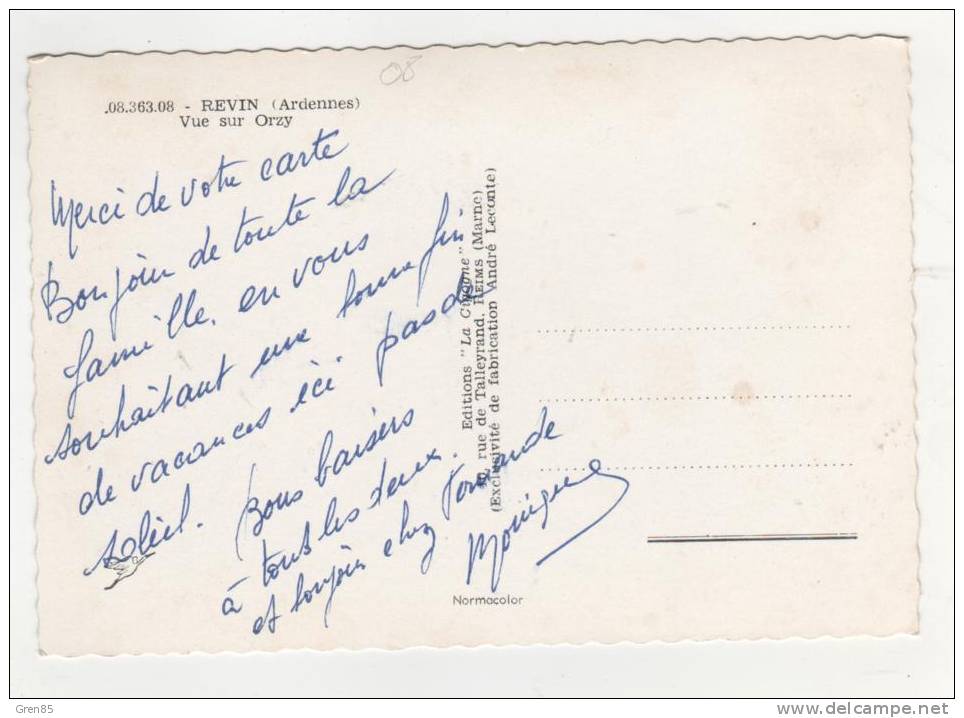 08
.08.363.08 - REVIN (Ardennes)
Vue sur Orzy
Merci de votre carte
Bonjour de toute la
famille. en vous
souhaitant une bonne fin
de vacances ici. pas de
soleil. Bons baisers
à tous les deux.
et bonjour chez
Monique
Editions "La Cigogne"
rue de Talleyrand, REIMS (Marne)
(Exclusivité de fabrication André Leconte)
Normacolor
Gren85
delcampe.net